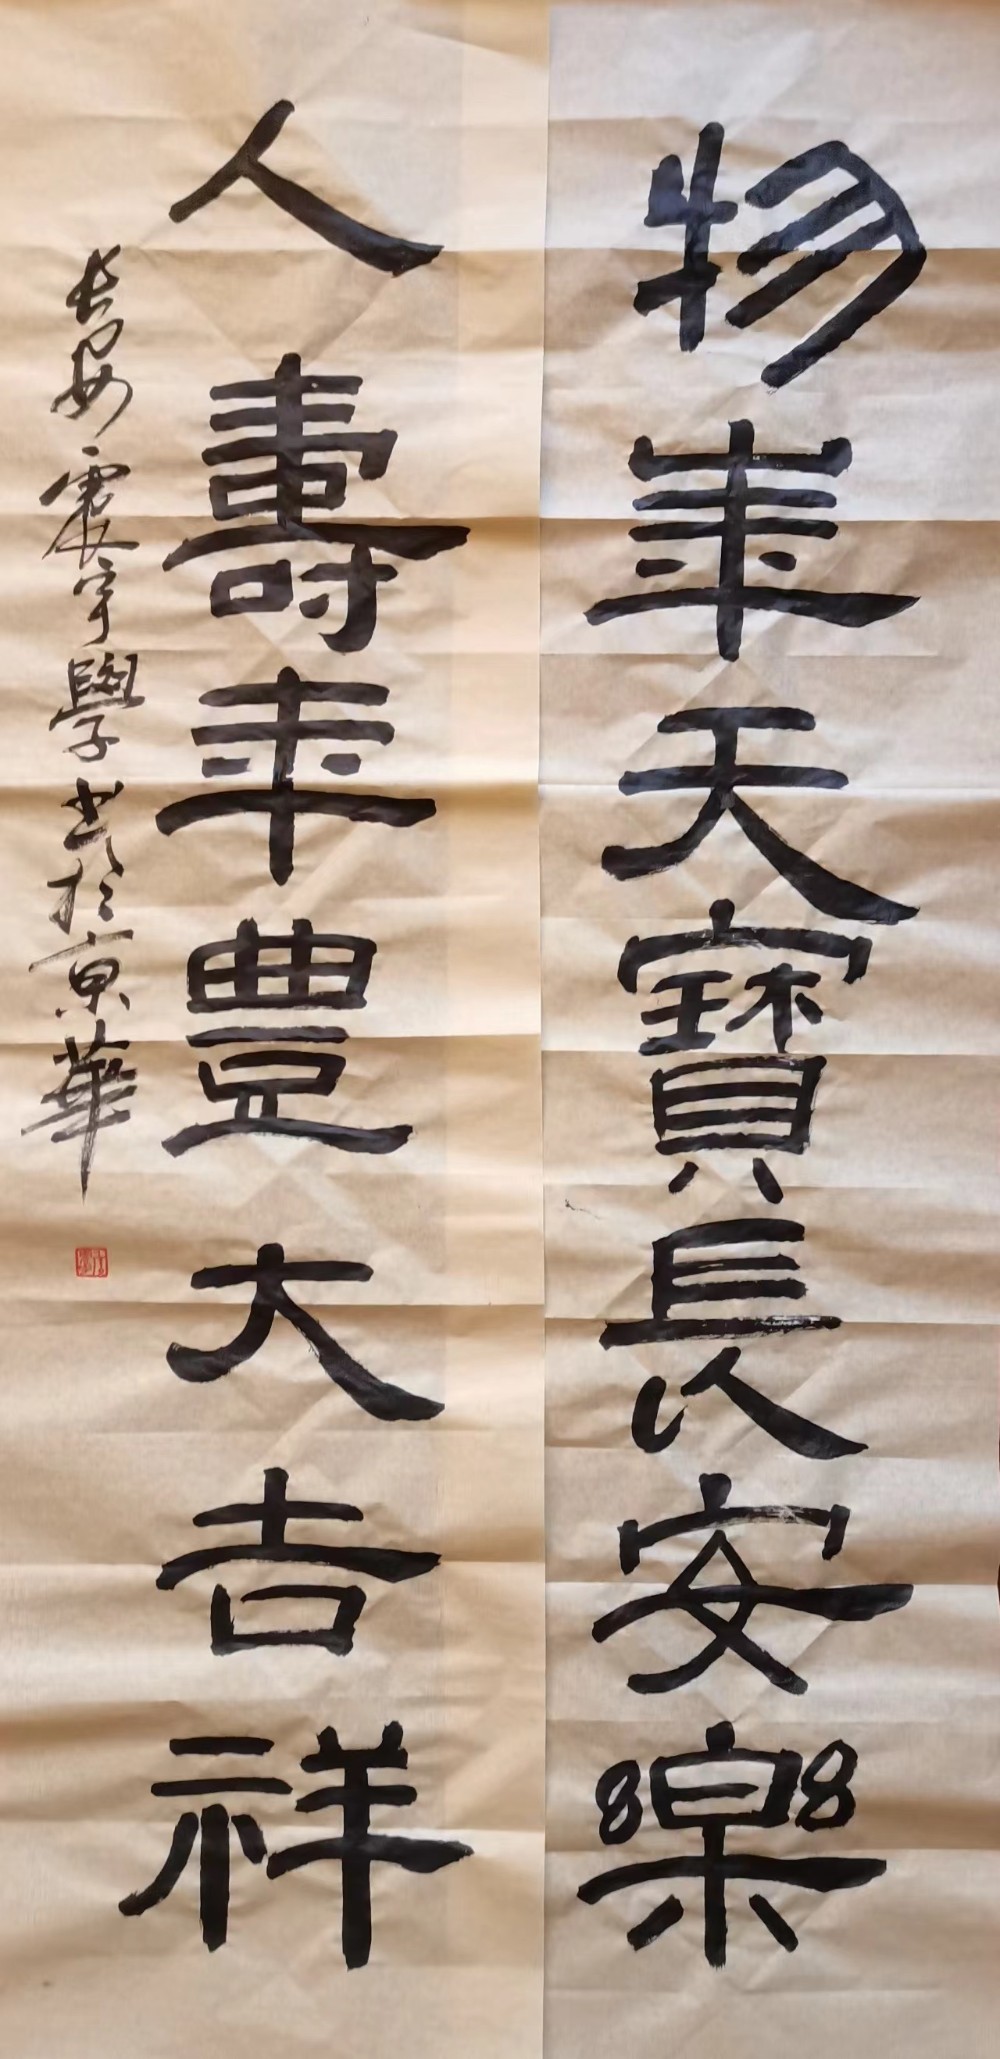 物華天寶長安樂
人壽年豐大吉祥
長安震宇學書於京華